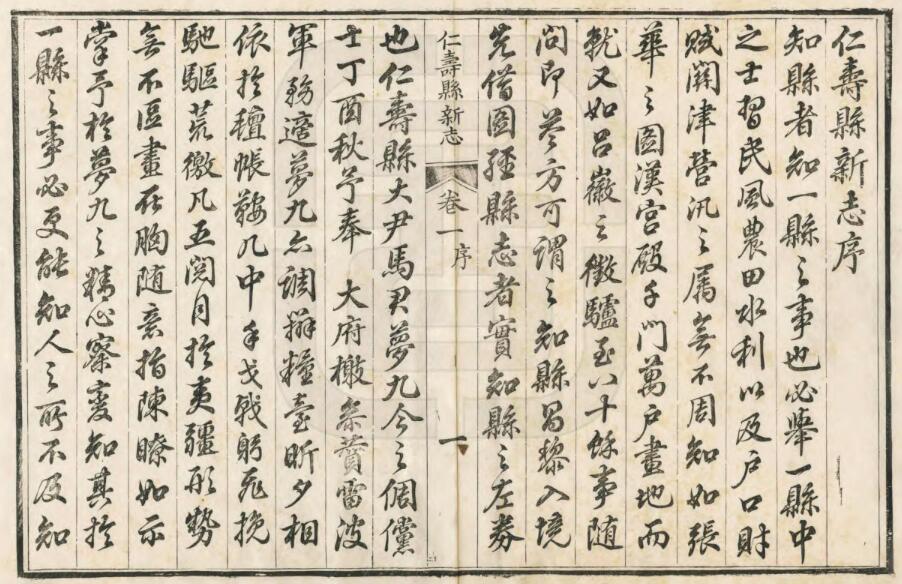 仁壽縣新志序
知縣者知一縣之事也必舉一縣中
之士習民風農田水利以及户口財
賦關津營汛之属無不周知如張
華之圖漢宫殿千門萬户畫地而
就又如吕徽之徵驢至八十餘事随
問即答方可謂之知縣昌黎入境
先借圖經縣志者實知縣之左券
仁壽縣新志 卷一序 一
也仁壽縣大尹馬君夢九今之倜儻
士丁酉秋予奉 大府檄叅賛雷波
軍務適夢九亦調辦糧臺昕夕相
依於氊帳鞍几中手戈戟躬飛挽
馳驅荒徼凡五閱月於夷疆形勢
無不區畫在胸随意指陳瞭如示
掌予於夢九之精心察变知其於
一縣之事必更能知人之所不及知